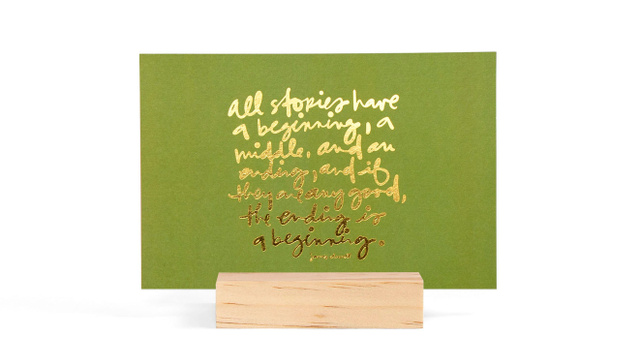 all stories have
a beginning, a
middle, and an
ending, and if
they are any good,
the ending is
a beginning.